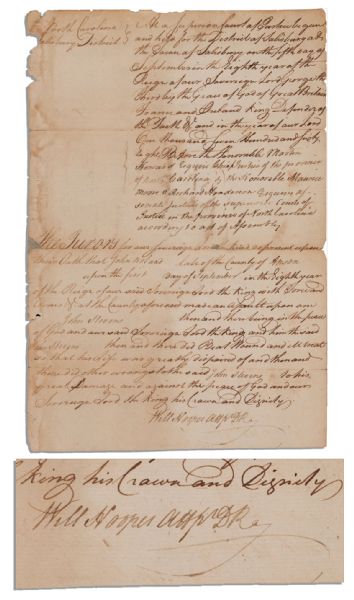 North Carolina
Salisbury District
At a Superior Court of Justice begun
and held for the District of Salisbury at
the Town of Salisbury on the fifth day of
September in the Eighth year of the
Reign of our Sovereign Lord George the
Third by the Grace of God of Great Britain
France and Ireland King Defender of
the Faith &c and in the year of our Lord
One thousand Seven Hundred and Sixty
Eight Before the Honorable Martin
Howard Esquire Chief Justice of the province
of North Carolina & the Honorable Maurice
Moore & Richard Henderson Esquires
Justices of the Superior Courts of
Justice in the province of North Carolina
according to act of Assembly
The Jurors for our Sovereign Lord the King upon
their Oath that John late of the County of Anson
upon the first day of September in the Eighth year
of the Reign of our said Sovereign Lord the King with force and
arms &c at the County aforesaid made an assault upon one
John Stevens then and there being in the peace
of God and our said Sovereign Lord the King and him the said
then and there did Beat Wound and ill treat
so that his life was greatly dispaired of and then and
there did other wrongs to the said John Stevens to his
great Damage and against the peace of God and our
Sovereign Lord the King his Crown and Dignity
Will Hooper
King his Crown and Dignity
Will Hooper